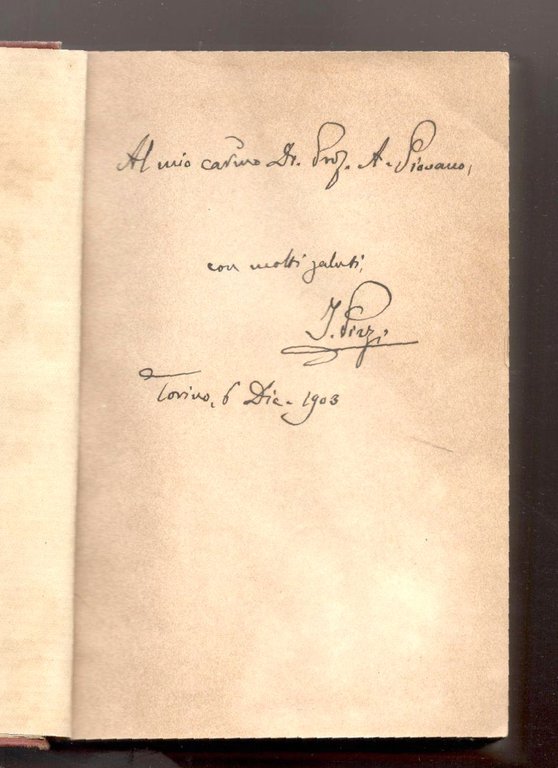 Al mio car̃mo Dr. Prof. A. Piovano,
con molti saluti,
I. Pizzi
Torino, 6 Dic. 1903